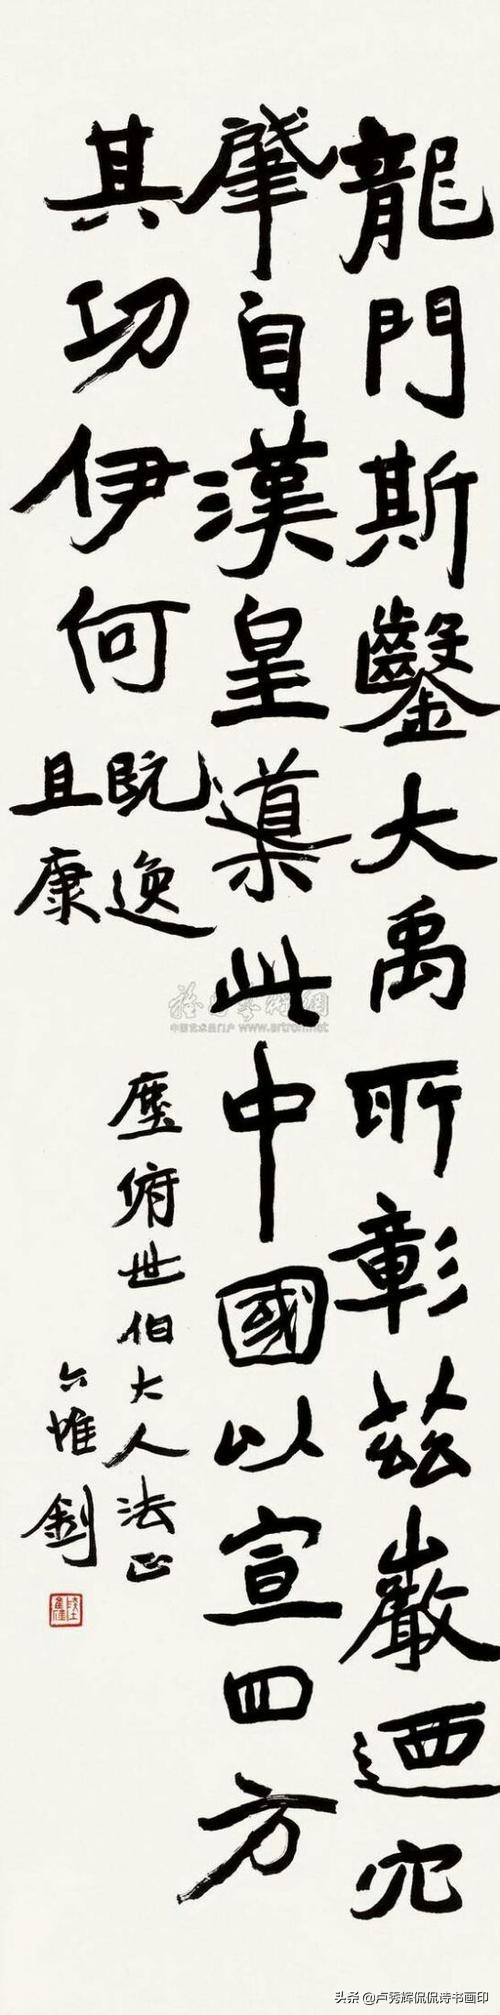 龍門斯鑿大禹所彰茲巖迺穴
肇自漢皇導此中國以宣四方
其功伊何
既逸
且康
俯世伯大人法正
六惟釗
雅昌藝術網
中国艺术品门户 www.artron.net
头条 @卢秀辉侃侃诗书画印